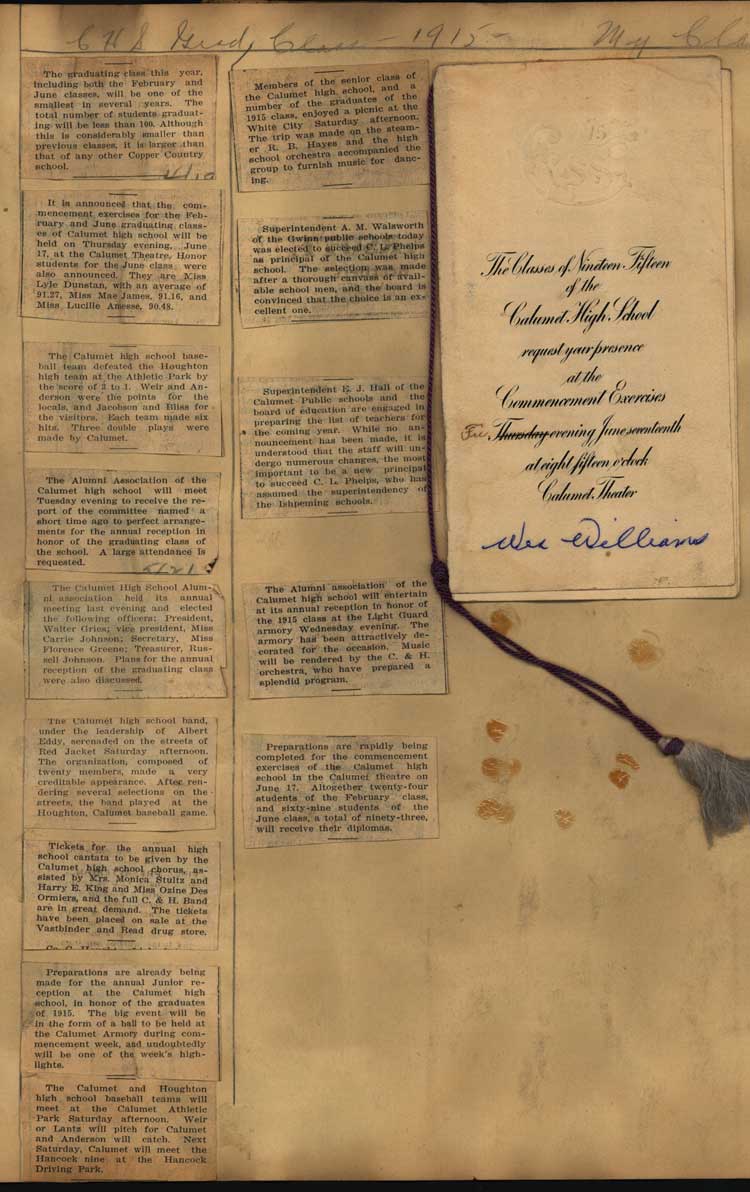 C H S Grad Class - 1915 -
My Cla
The graduating class this year,
including both the February and
June classes, will be one of the
smallest in several years. The
total number of students graduat-
ing will be less than 100. Although
this is considerably smaller than
previous classes, it is larger than
that of any other Copper Country
school.
It is announced that the com-
mencement exercises for the Feb-
ruary and June graduating class-
es of Calumet high school will be
held on Thursday evening, June
17, at the Calumet Theatre. Honor
students for the June class were
also announced. They are Miss
Lyle Dunstan, with an average of
91.27, Miss Mae James, 91.16, and
Miss Lucille Amesse, 90.48.
The Calumet high school base-
ball team defeated the Houghton
high team at the Athletic Park by
the score of 2 to 1. Weir and An-
derson were the points for the
locals, and Jacobson and Bliss for
the visitors. Each team made six
hits. Three double plays were
made by Calumet.
The Alumni Association of the
Calumet high school will meet
Tuesday evening to receive the re-
port of the committee named a
short time ago to perfect arrange-
ments for the annual reception in
honor of the graduating class of
the school. A large attendance is
requested.
The Calumet High School Alum-
ni association held its annual
meeting last evening and elected
the following officers: President,
Walter Gries; vice president, Miss
Carrie Johnson; Secretary, Miss
Florence Greene; Treasurer, Rus-
sell Johnson. Plans for the annual
reception of the graduating class
were also discussed.
The Calumet high school band,
under the leadership of Albert
Eddy, serenaded on the streets of
Red Jacket Saturday afternoon.
The organization, composed of
twenty members, made a very
creditable appearance. After ren-
dering several selections on the
streets, the band played at the
Houghton, Calumet baseball game.
Tickets for the annual high
school cantata to be given by the
Calumet high school chorus, as-
sisted by Mrs. Monica Stultz and
Harry E. King and Miss Ozine Des
Ormiers, and the full C. & H. Band
are in great demand. The tickets
have been placed on sale at the
Vastbinder and Read drug store.
Preparations are already being
made for the annual Junior re-
ception at the Calumet high
school, in honor of the graduates
of 1915. The big event will be
in the form of a ball to be held at
the Calumet Armory during com-
mencement week, and undoubtedly
will be one of the week's high-
lights.
The Calumet and Houghton
high school baseball teams will
meet at the Calumet Athletic
Park Saturday afternoon. Weir
or Lantz will pitch for Calumet
and Anderson will catch. Next
Saturday, Calumet will meet the
Hancock nine at the Hancock
Driving Park.
Members of the senior class of
the Calumet high school, and a
number of the graduates of the
1915 class, enjoyed a picnic at the
White City Saturday afternoon.
The trip was made on the steam-
er R. B. Hayes and the high
school orchestra accompanied the
group to furnish music for danc-
ing.
Superintendent A. M. Walsworth
of the Gwinn public schools today
was elected to succeed C. L. Phelps
as principal of the Calumet high
school. The selection was made
after a thorough canvass of avail-
able school men, and the board is
convinced that the choice is an ex-
cellent one.
Superintendent E. J. Hall of the
Calumet Public schools and the
board of education are engaged in
preparing the list of teachers for
the coming year. While no an-
nouncement has been made, it is
understood that the staff will un-
dergo numerous changes, the most
important to be a new principal
to succeed C. L. Phelps, who has
assumed the superintendency of
the Ishpeming schools.
The Alumni association of the
Calumet high school will entertain
at its annual reception in honor of
the 1915 class at the Light Guard
armory Wednesday evening. The
armory has been attractively de-
corated for the occasion. Music
will be rendered by the C. & H.
orchestra, who have prepared a
splendid program.
Preparations are rapidly being
completed for the commencement
exercises of the Calumet high
school in the Calumet theatre on
June 17. Altogether twenty-four
students of the February class,
and sixty-nine students of the
June class, a total of ninety-three,
will receive their diplomas.
15
The Classes of Nineteen Fifteen
of the
Calumet High School
request your presence
at the
Commencement Exercises
Fri. Thursday evening June seventeenth
at eight fifteen o'clock
Calumet Theater
Wes Williams